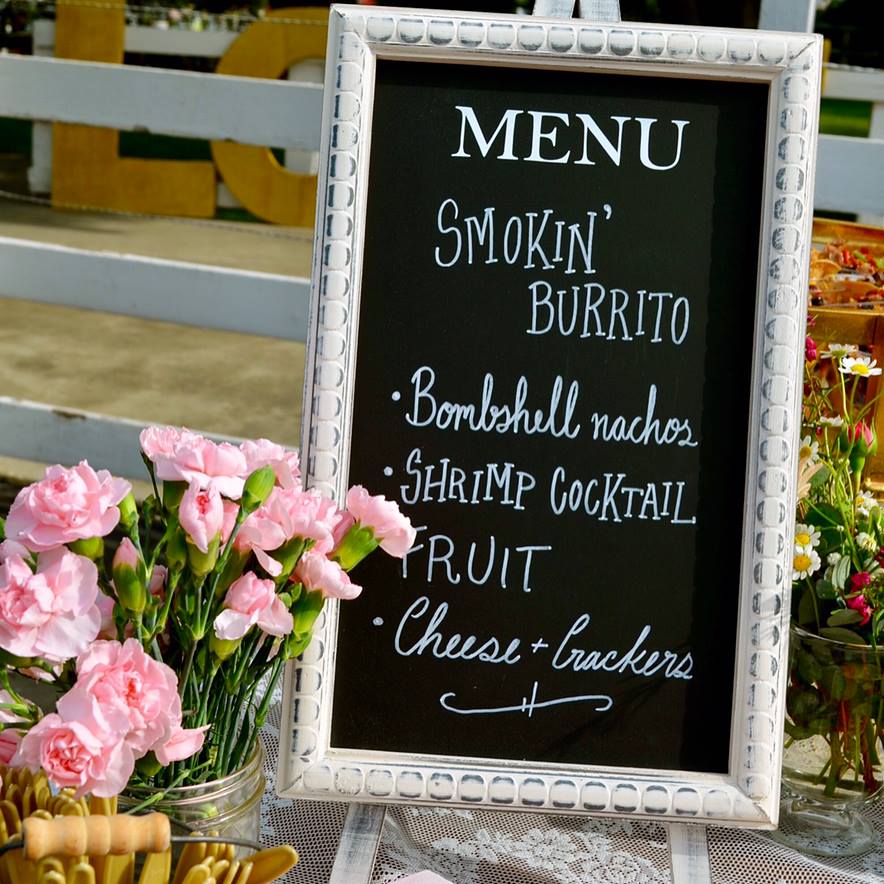 LO
MENU
SMOKIN'
BURRITO
• Bombshell nachos
• SHRIMP COCKTAIL
FRUIT
• Cheese + Crackers